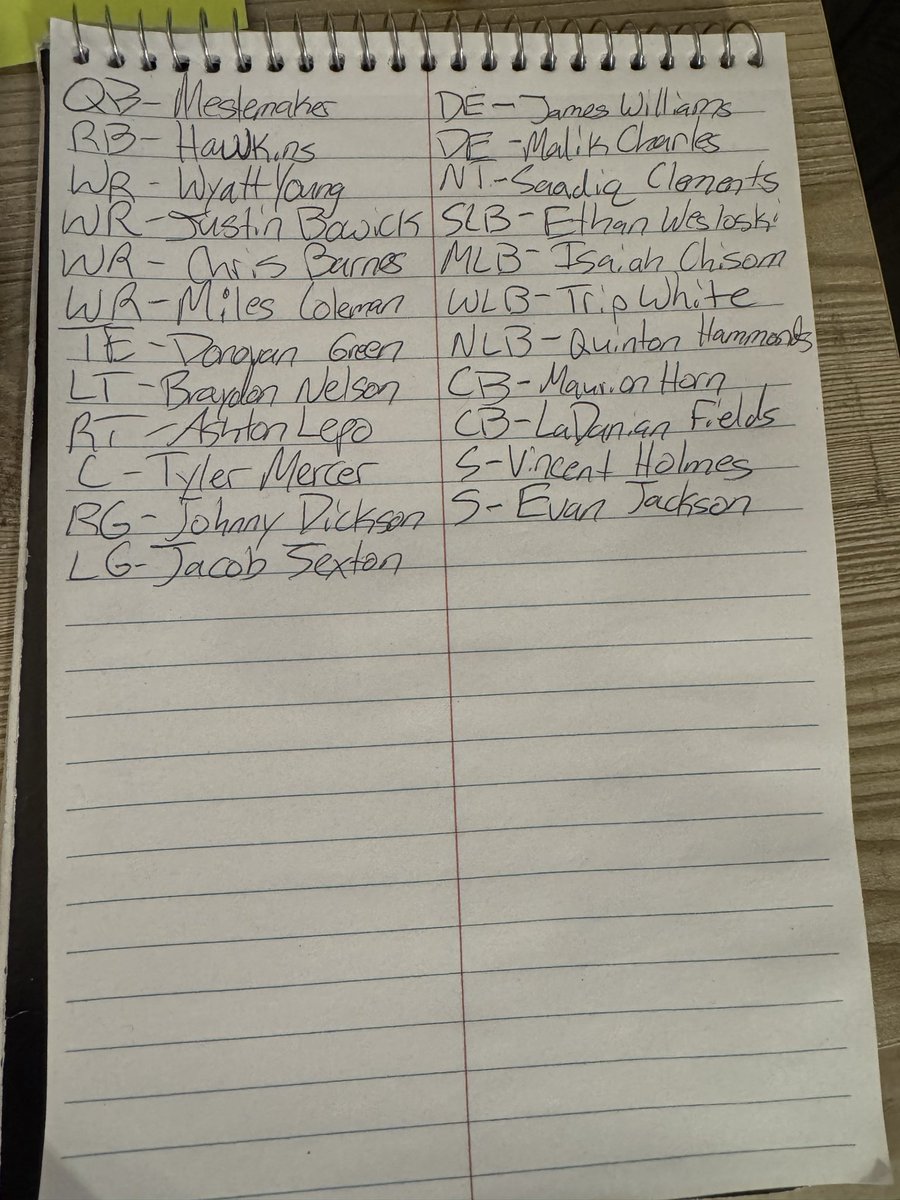 QB- Mestemaker
RB- Hawkins
WR - Wyatt Young
WR-Justin Bowick
WR - Chris Barnes
WR-Miles Coleman
TE-Donovan Green
LT-Braydon Nelson
RT-Ashton Lepo
C-Tyler Mercer
RG-Johnny Dickson
LG-Jacob Sexton
DE-James Williams
DE-Malik Charles
NT-Saadiq Clements
SLB-Ethan Wesloski
MLB-Isaiah Chisom
WLB-Trip White
NLB-Quinton Hammonds
CB-Maurion Horn
CB-LaDanian Fields
S-Vincent Holmes
S-Evan Jackson